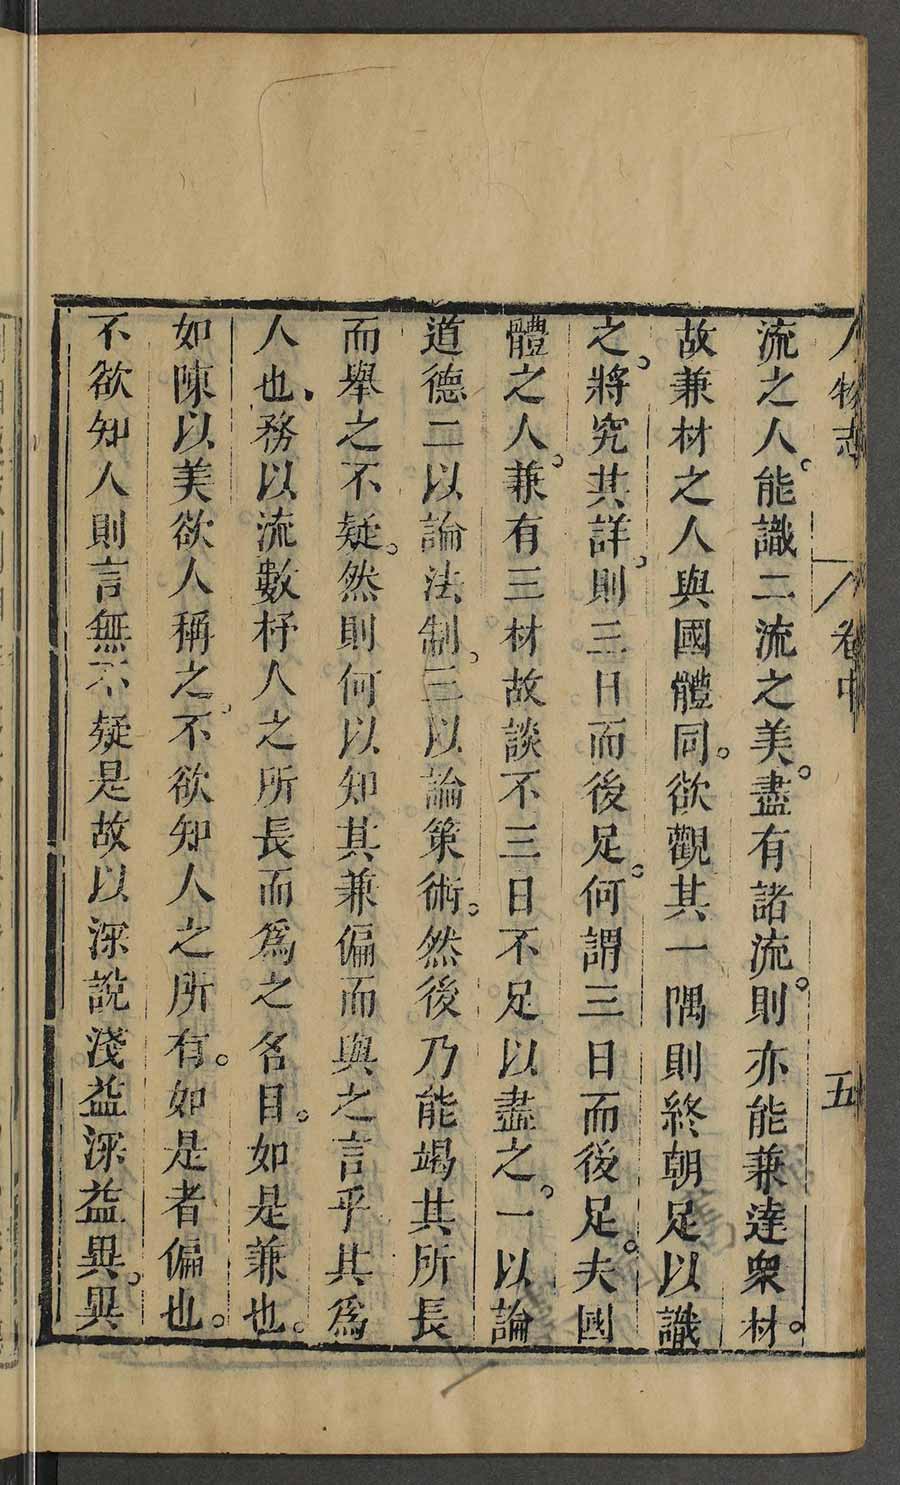 人物志 卷中 五
流之人。能識二流之美。盡有諸流。則亦能兼達衆材。
故兼材之人與國體同。欲觀其一隅則終朝足以識
之。將究其詳。則三日而後足。何謂三日而後足。夫國
體之人。兼有三材故談不三日不足以盡之。一以論
道德二以論法制。三以論策術。然後乃能竭其所長
而舉之不疑。然則何以知其兼偏而與之言乎其爲
人也、務以流數杼人之所長而爲之名目。如是兼也。
如陳以美欲人稱之。不欲知人之所有。如是者偏也。
不欲知人則言無不疑是故以深說淺益深益異。異